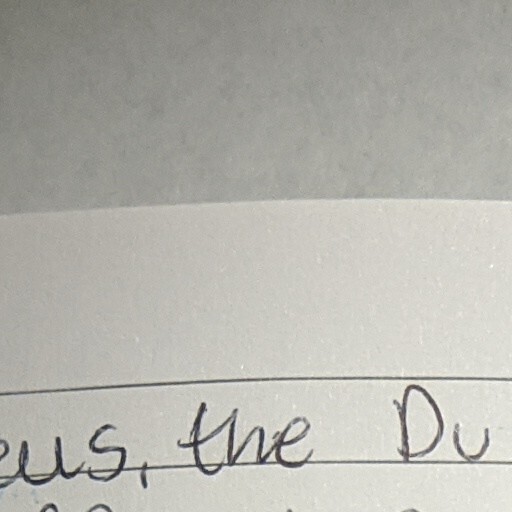 eus, the Du